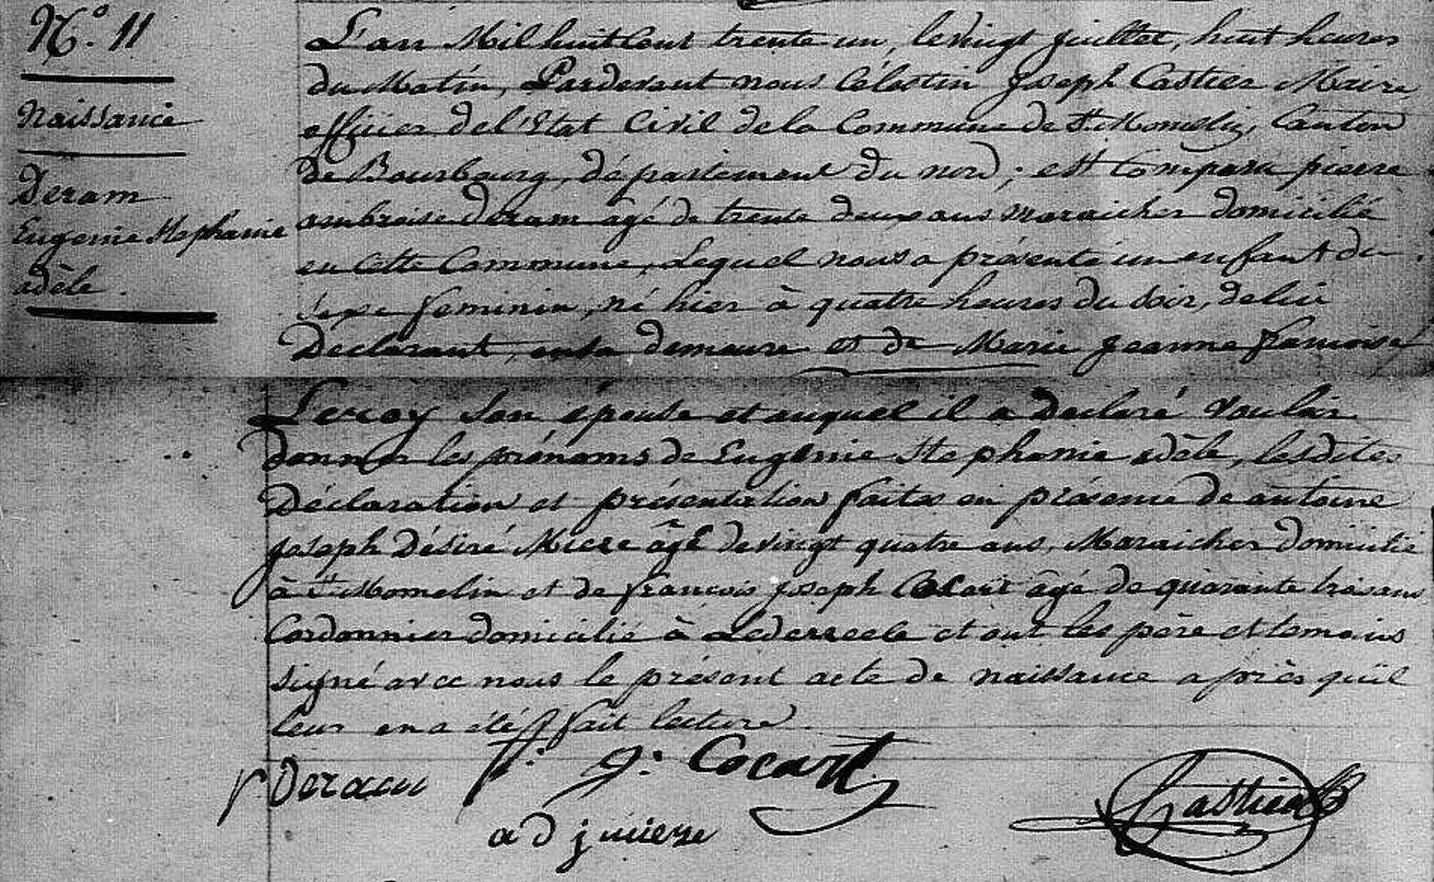 N.° 11
Naissance
Deram
Eugenie Stephanie
adèle.
L'an Mil huit Cent trente un, le vingt juillet, huit heures
du Matin, Pardevant nous Célestin Joseph Castier Maire
officier de l'Etat Civil de la Commune de St. Momelin, Canton
de Bourbourg, département du nord; est Comparu pierre
ambroise deram âgé de trente deux ans maraicher domicilié
en cette Commune, Lequel nous a présenté un enfant du
sexe feminin, né hier à quatre heures du soir, de lui
Declarant, en sa demeure et de Marie Jeanne françoise
Leroy son épouse et auquel il a declaré vouloir
donner les prénoms de Eugénie Stephanie adèle, lesdites
Déclaration et présentation faites en présence de antoine
joseph Désiré âgé de vingt quatre ans, Maraicher domicilié
à St. Momelin et de françois joseph Cocart âgé de quarante trois ans
Cordonnier domicilié à Lederzeele et ont les père et temoins
signé avec nous le présent acte de naissance après qu'il
leur en a été fait lecture.
p Deram f. j. Cocart
a D j Castier